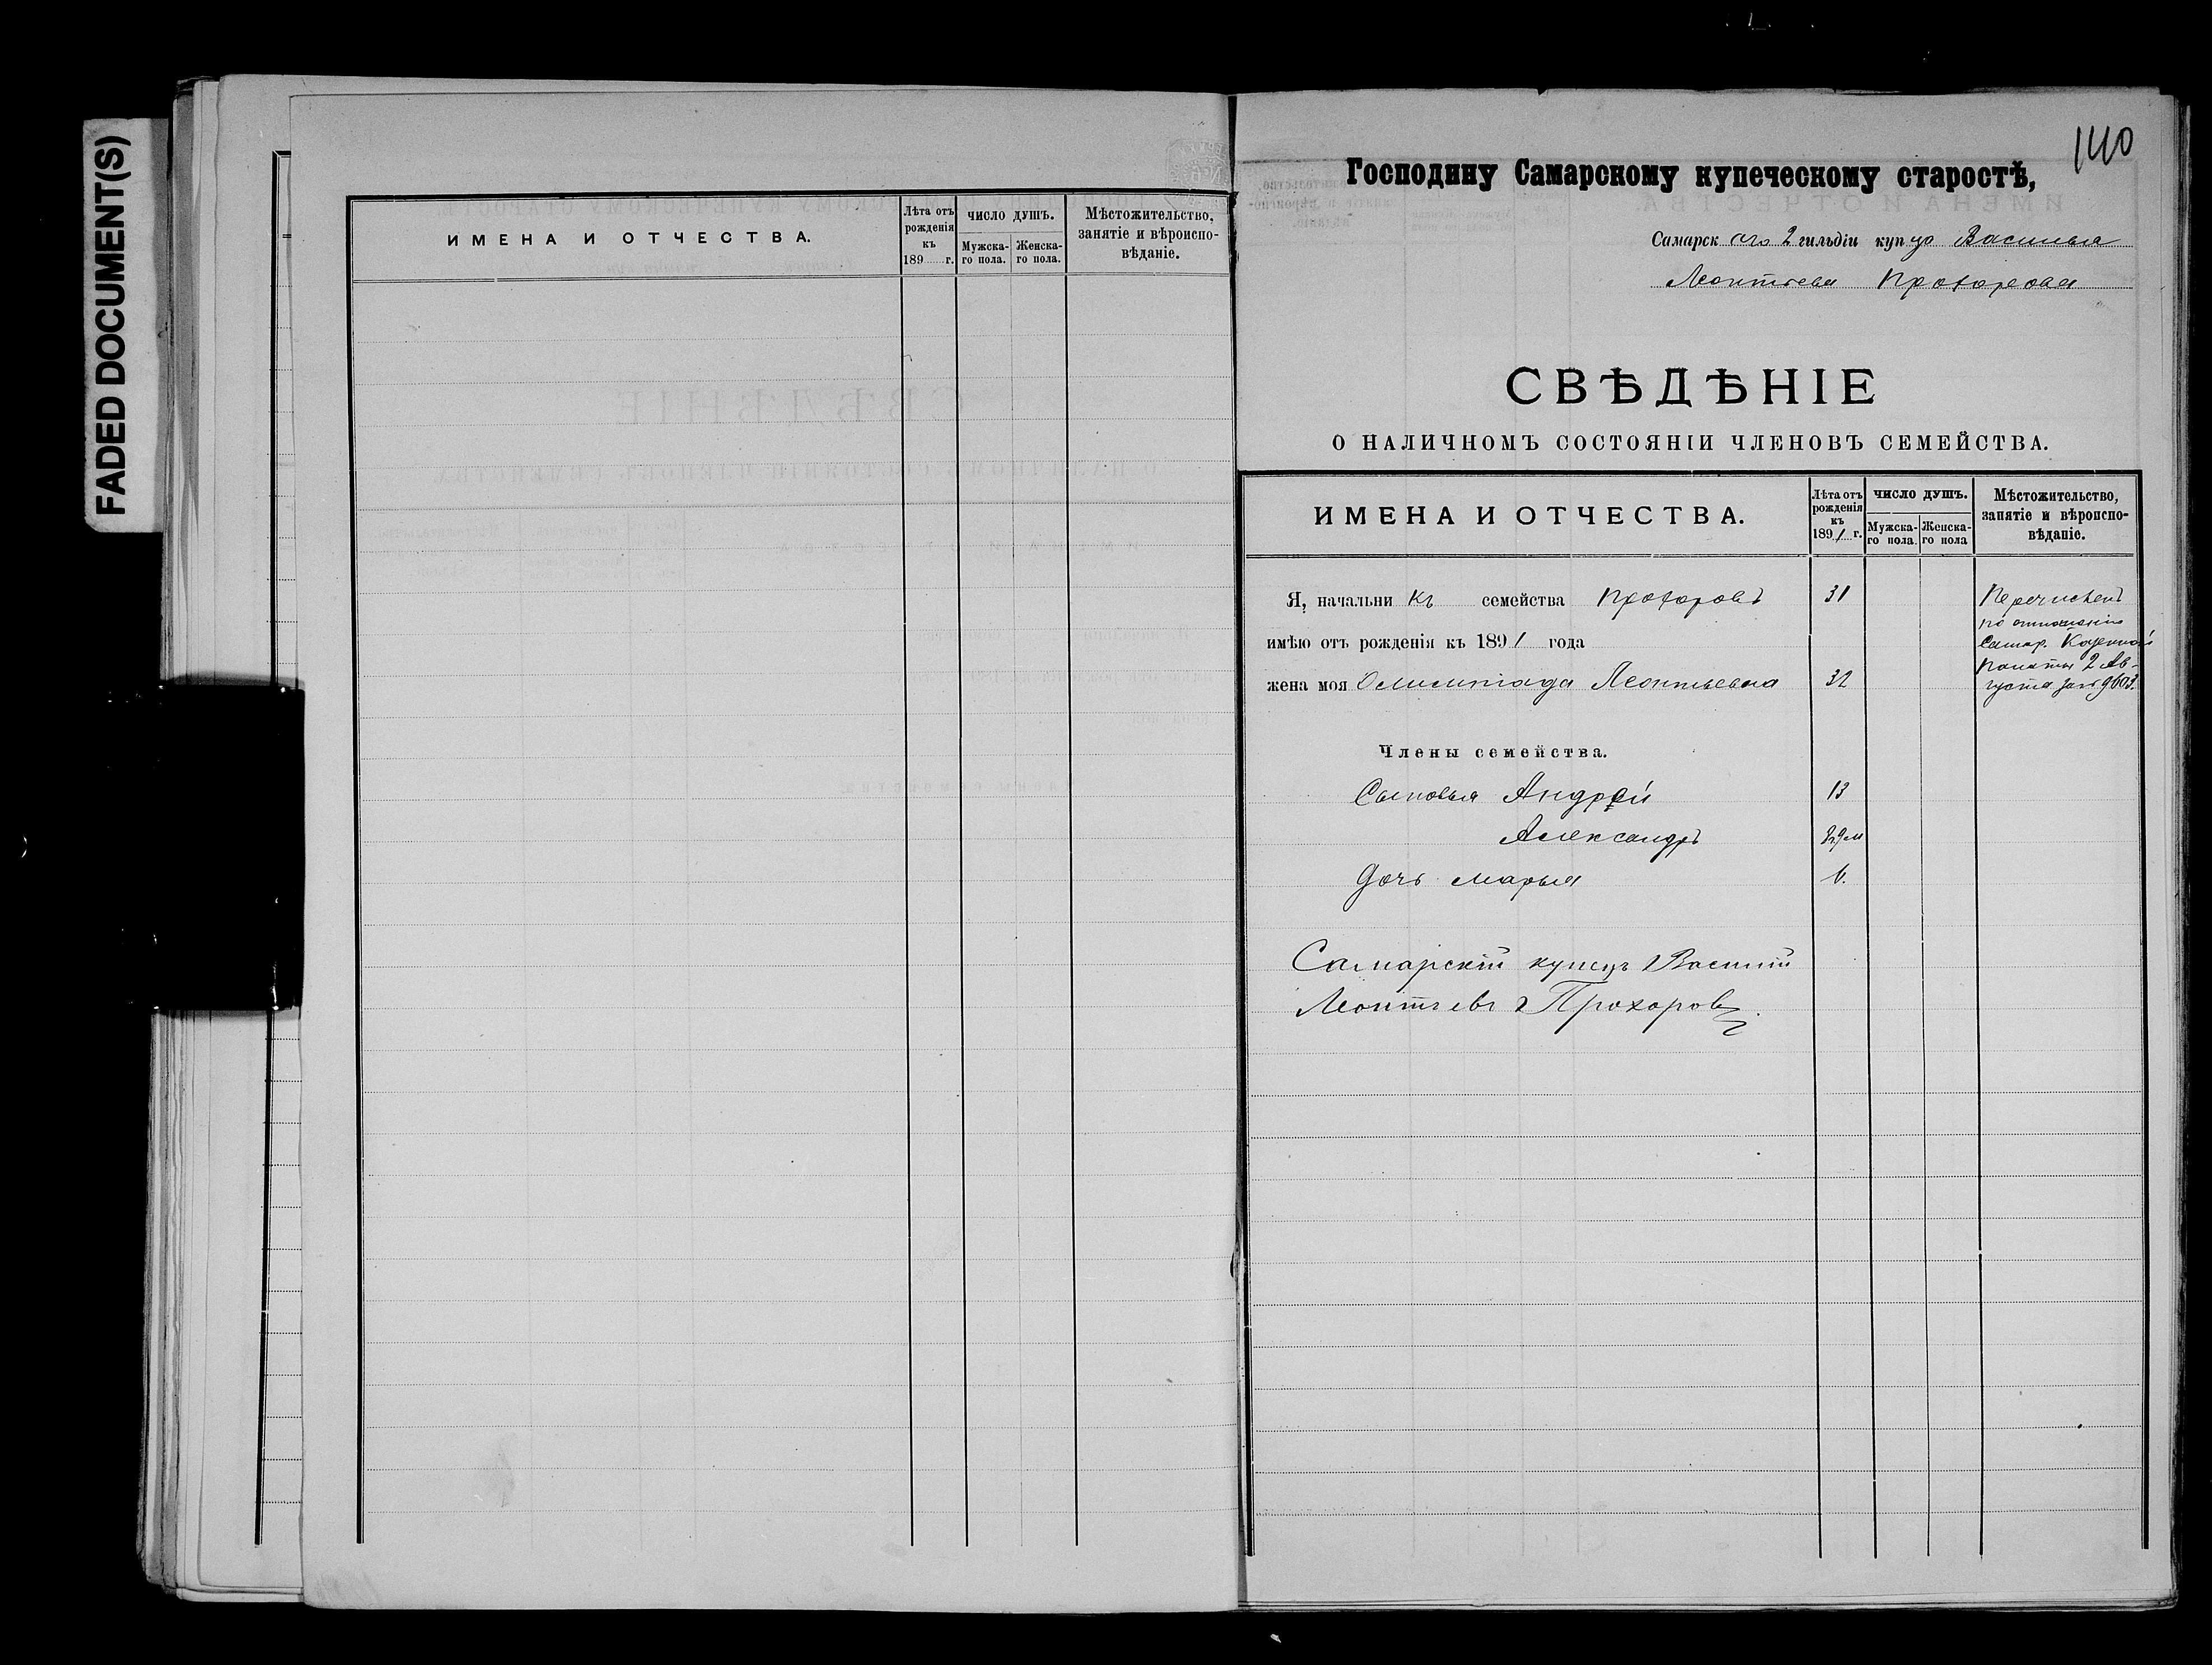 FADED DOCUMENT(S)
ИМЕНА И ОТЧЕСТВА.
Лѣта отъ рожденія къ 189 г.
ЧИСЛО ДУШЪ.
Мужска-го пола.
Женска-го пола.
Мѣстожительство, занятіе и вѣроиспо-вѣданіе.
140
Господину Самарскому купеческому старостѣ,
Самарск аго 2 гильдіи куп ца Василья
Леонтьева Прохорова
СВѢДѢНІЕ
О НАЛИЧНОМЪ СОСТОЯНІИ ЧЛЕНОВЪ СЕМЕЙСТВА.
ИМЕНА И ОТЧЕСТВА.
Лѣта отъ рожденія къ 1891 г.
ЧИСЛО ДУШЪ.
Мужска-го пола.
Женска-го пола
Мѣстожительство, занятіе и вѣроиспо-вѣданіе.
Я, начальни къ семейства Прохоровъ 31
Перечисленъ
по отношенію
Самар. Казенной
Палаты 2 Ав-
густа за № 9603.
имѣю отъ рожденія къ 1891 года
жена моя Олимпіада Леонтьевна 32
Члены семейства.
Сыновья Андрей 13
Александръ
Дочь Марья
Самарскій купецъ Василій
Леонтьевъ Прохоровъ